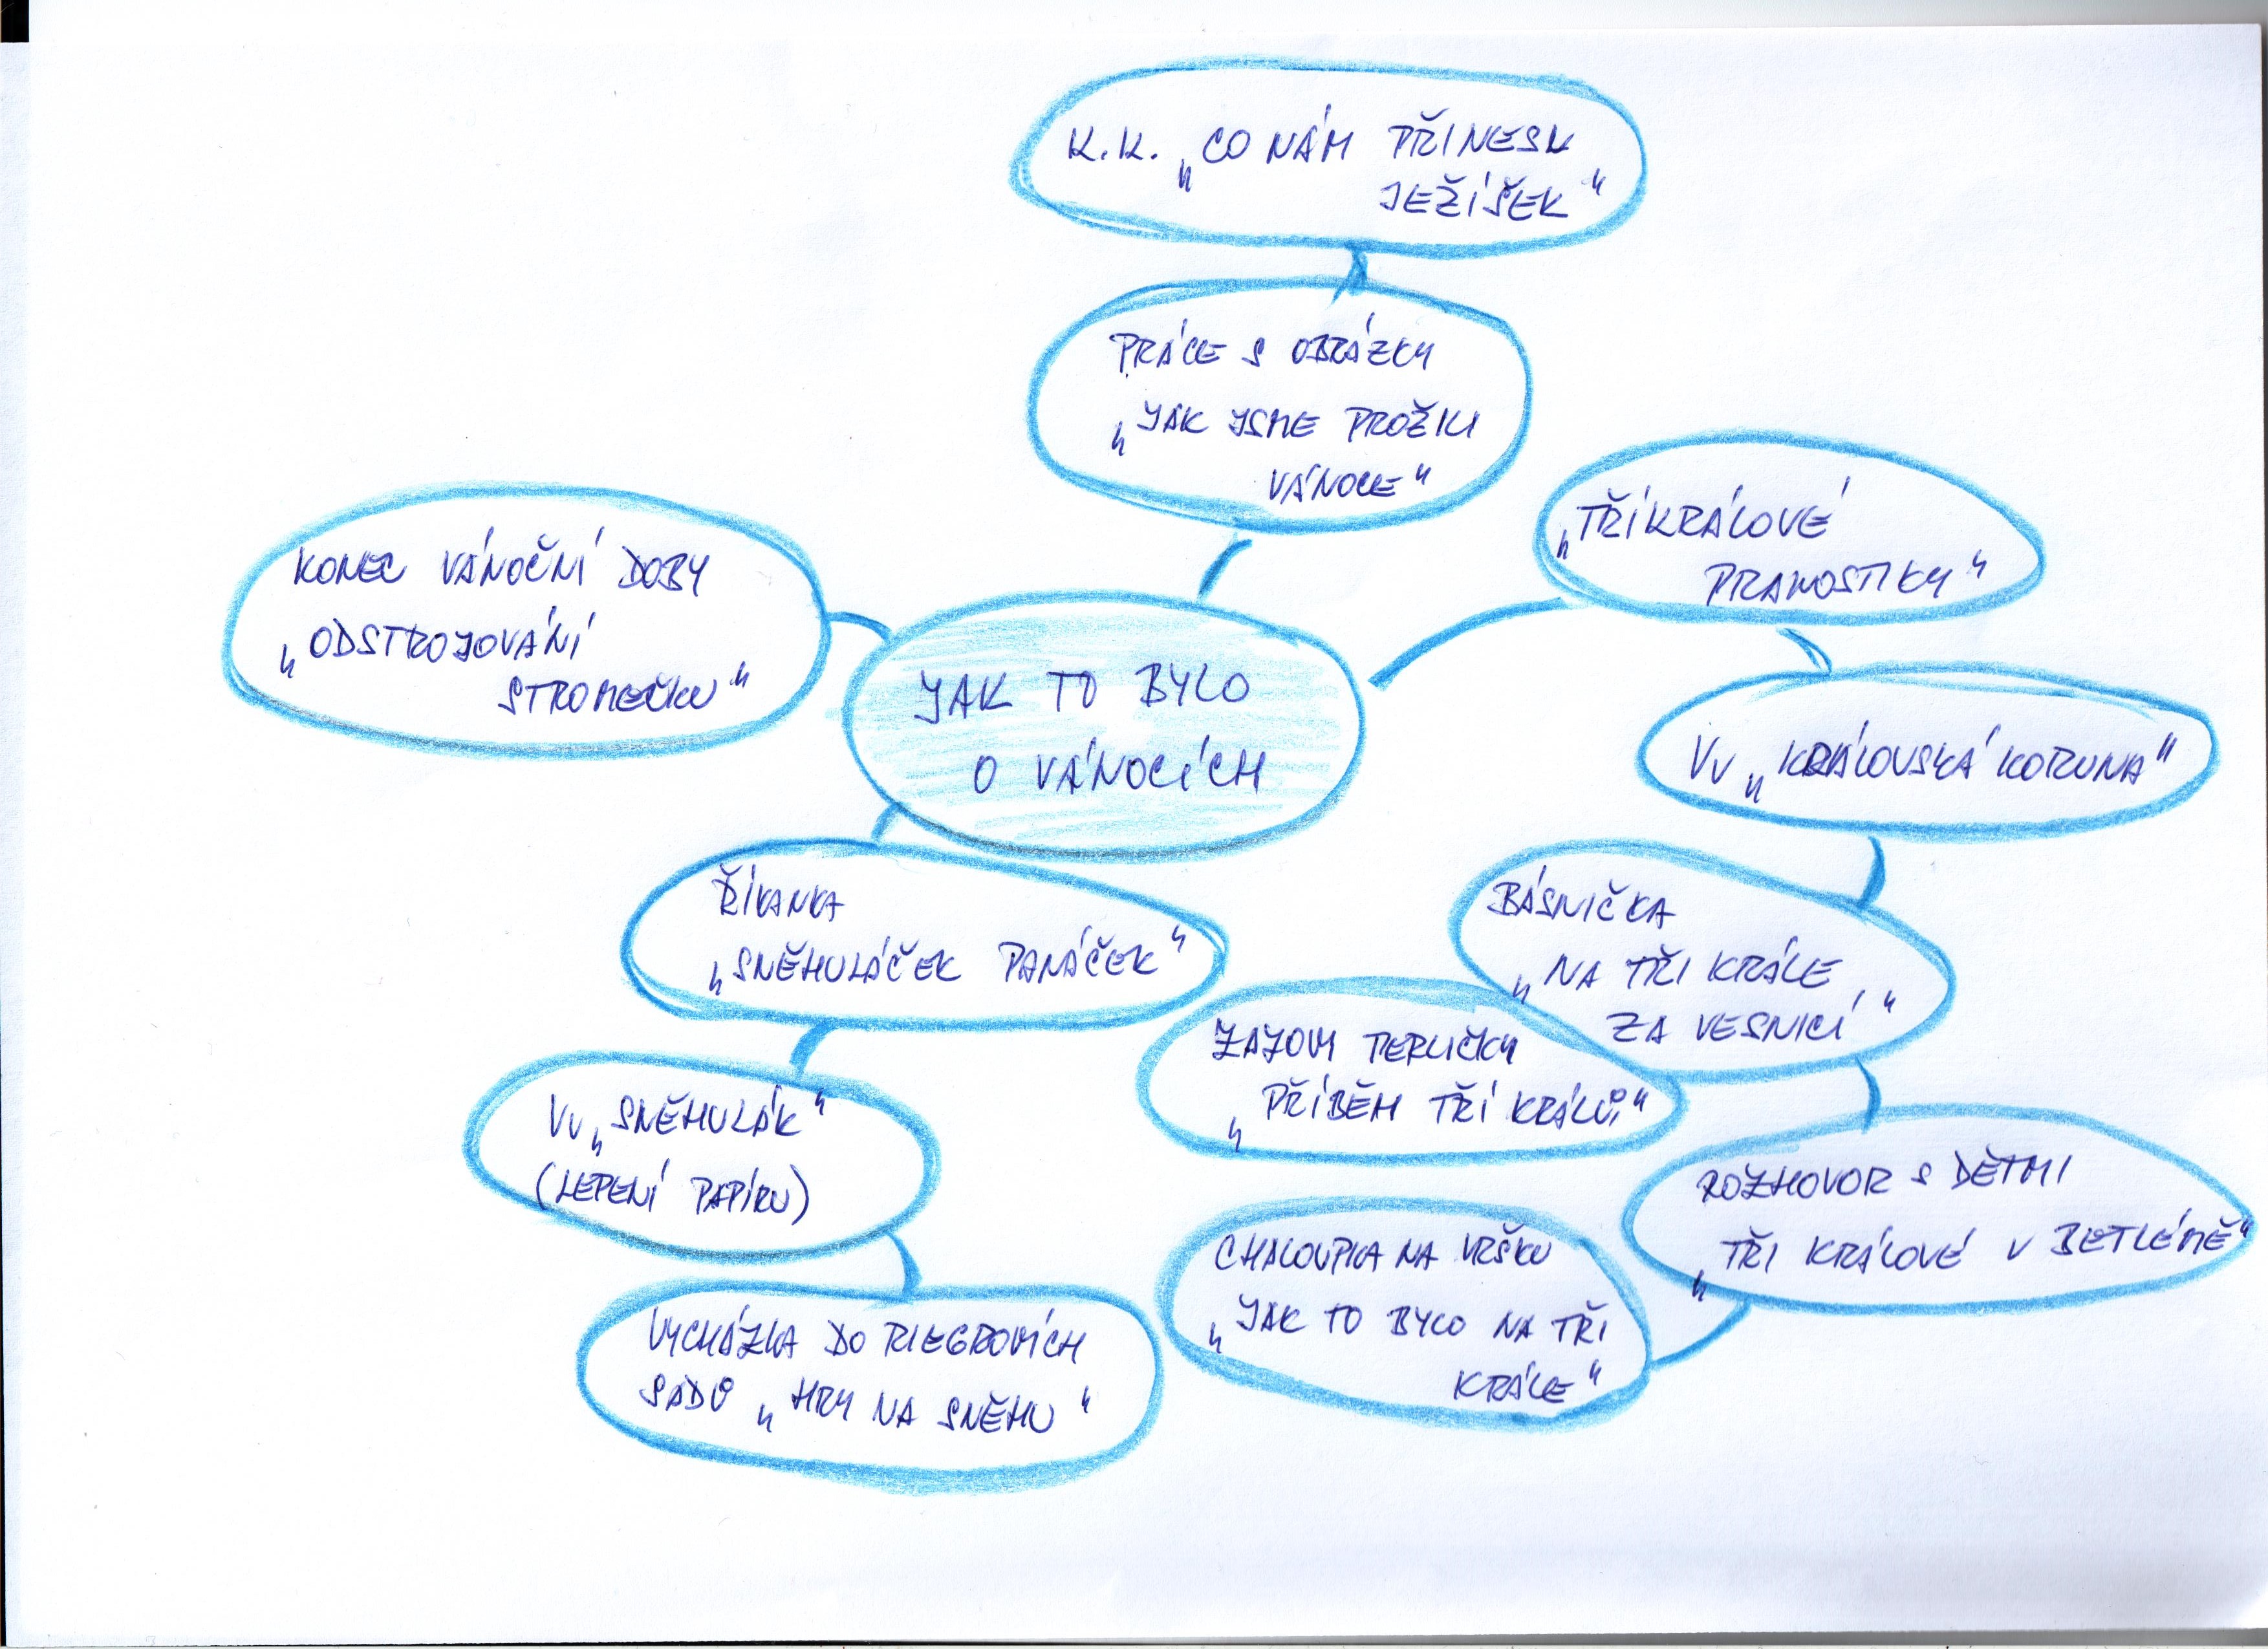 K.K. „CO NÁM PŘINESL
JEŽÍŠEK"
PRÁCE S OBRÁZKY
„JAK JSME PROŽILI
VÁNOCE"
„TŘÍKRÁLOVÉ
PRANOSTIKY"
KONEC VÁNOČNÍ DOBY
„ODSTROJOVÁNÍ
STROMEČKU"
JAK TO BYLO
O VÁNOCÍCH
VV „KRÁLOVSKÁ KORUNA"
ŘÍKANKA
„SNĚHULÁČEK PANÁČEK"
BÁSNIČKA
„NA TŘI KRÁLE
ZA VESNICÍ"
PERLIČKY
„PŘÍBĚH TŘÍ KRÁLŮ"
VV „SNĚHULÁK"
(LEPENÍ PAPÍRU)
ROZHOVOR S DĚTMI
„TŘI KRÁLOVÉ V BETLÉMĚ"
CHALOUPKA NA VRŠKU
„JAK TO BYLO NA TŘI
KRÁLE"
VYCHÁZKA DO RIEGROVÍCH
SADŮ „HRY NA SNĚHU"